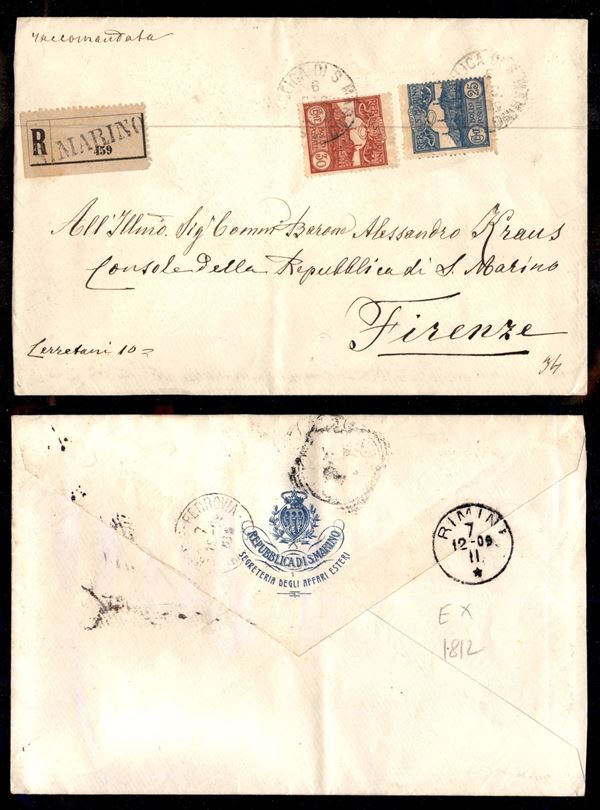 raccomandata
R S. MARINO
459
6
30
25
All'Illmo. Sigr Comm. Barone Alessandro Kraus
Console della Repubblica di S. Marino
Firenze
Cerretani 10=
34
FERROVIA
REPUBBLICA DI S. MARINO
SEGRETERIA DEGLI AFFARI ESTERI
RIMINI
7
12-09
11
EX
1812